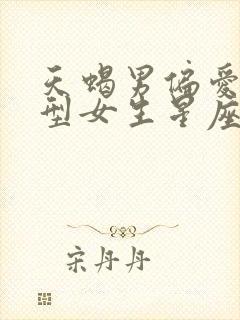 天蝎男偏爱
型女生星座
宋丹丹